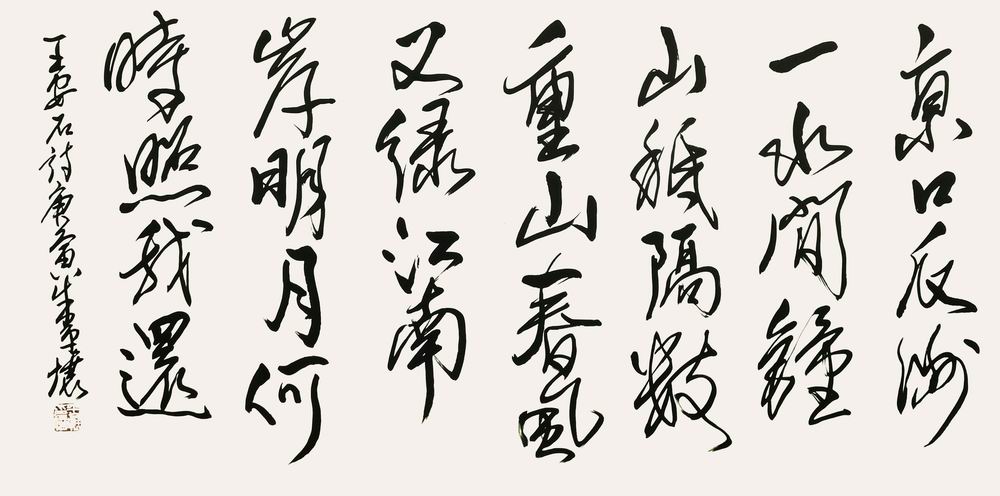 京口瓜洲
一水間鐘
山秪隔數
重山春風
又绿江南
岸明月何
時照我還
王安石詩庚寅